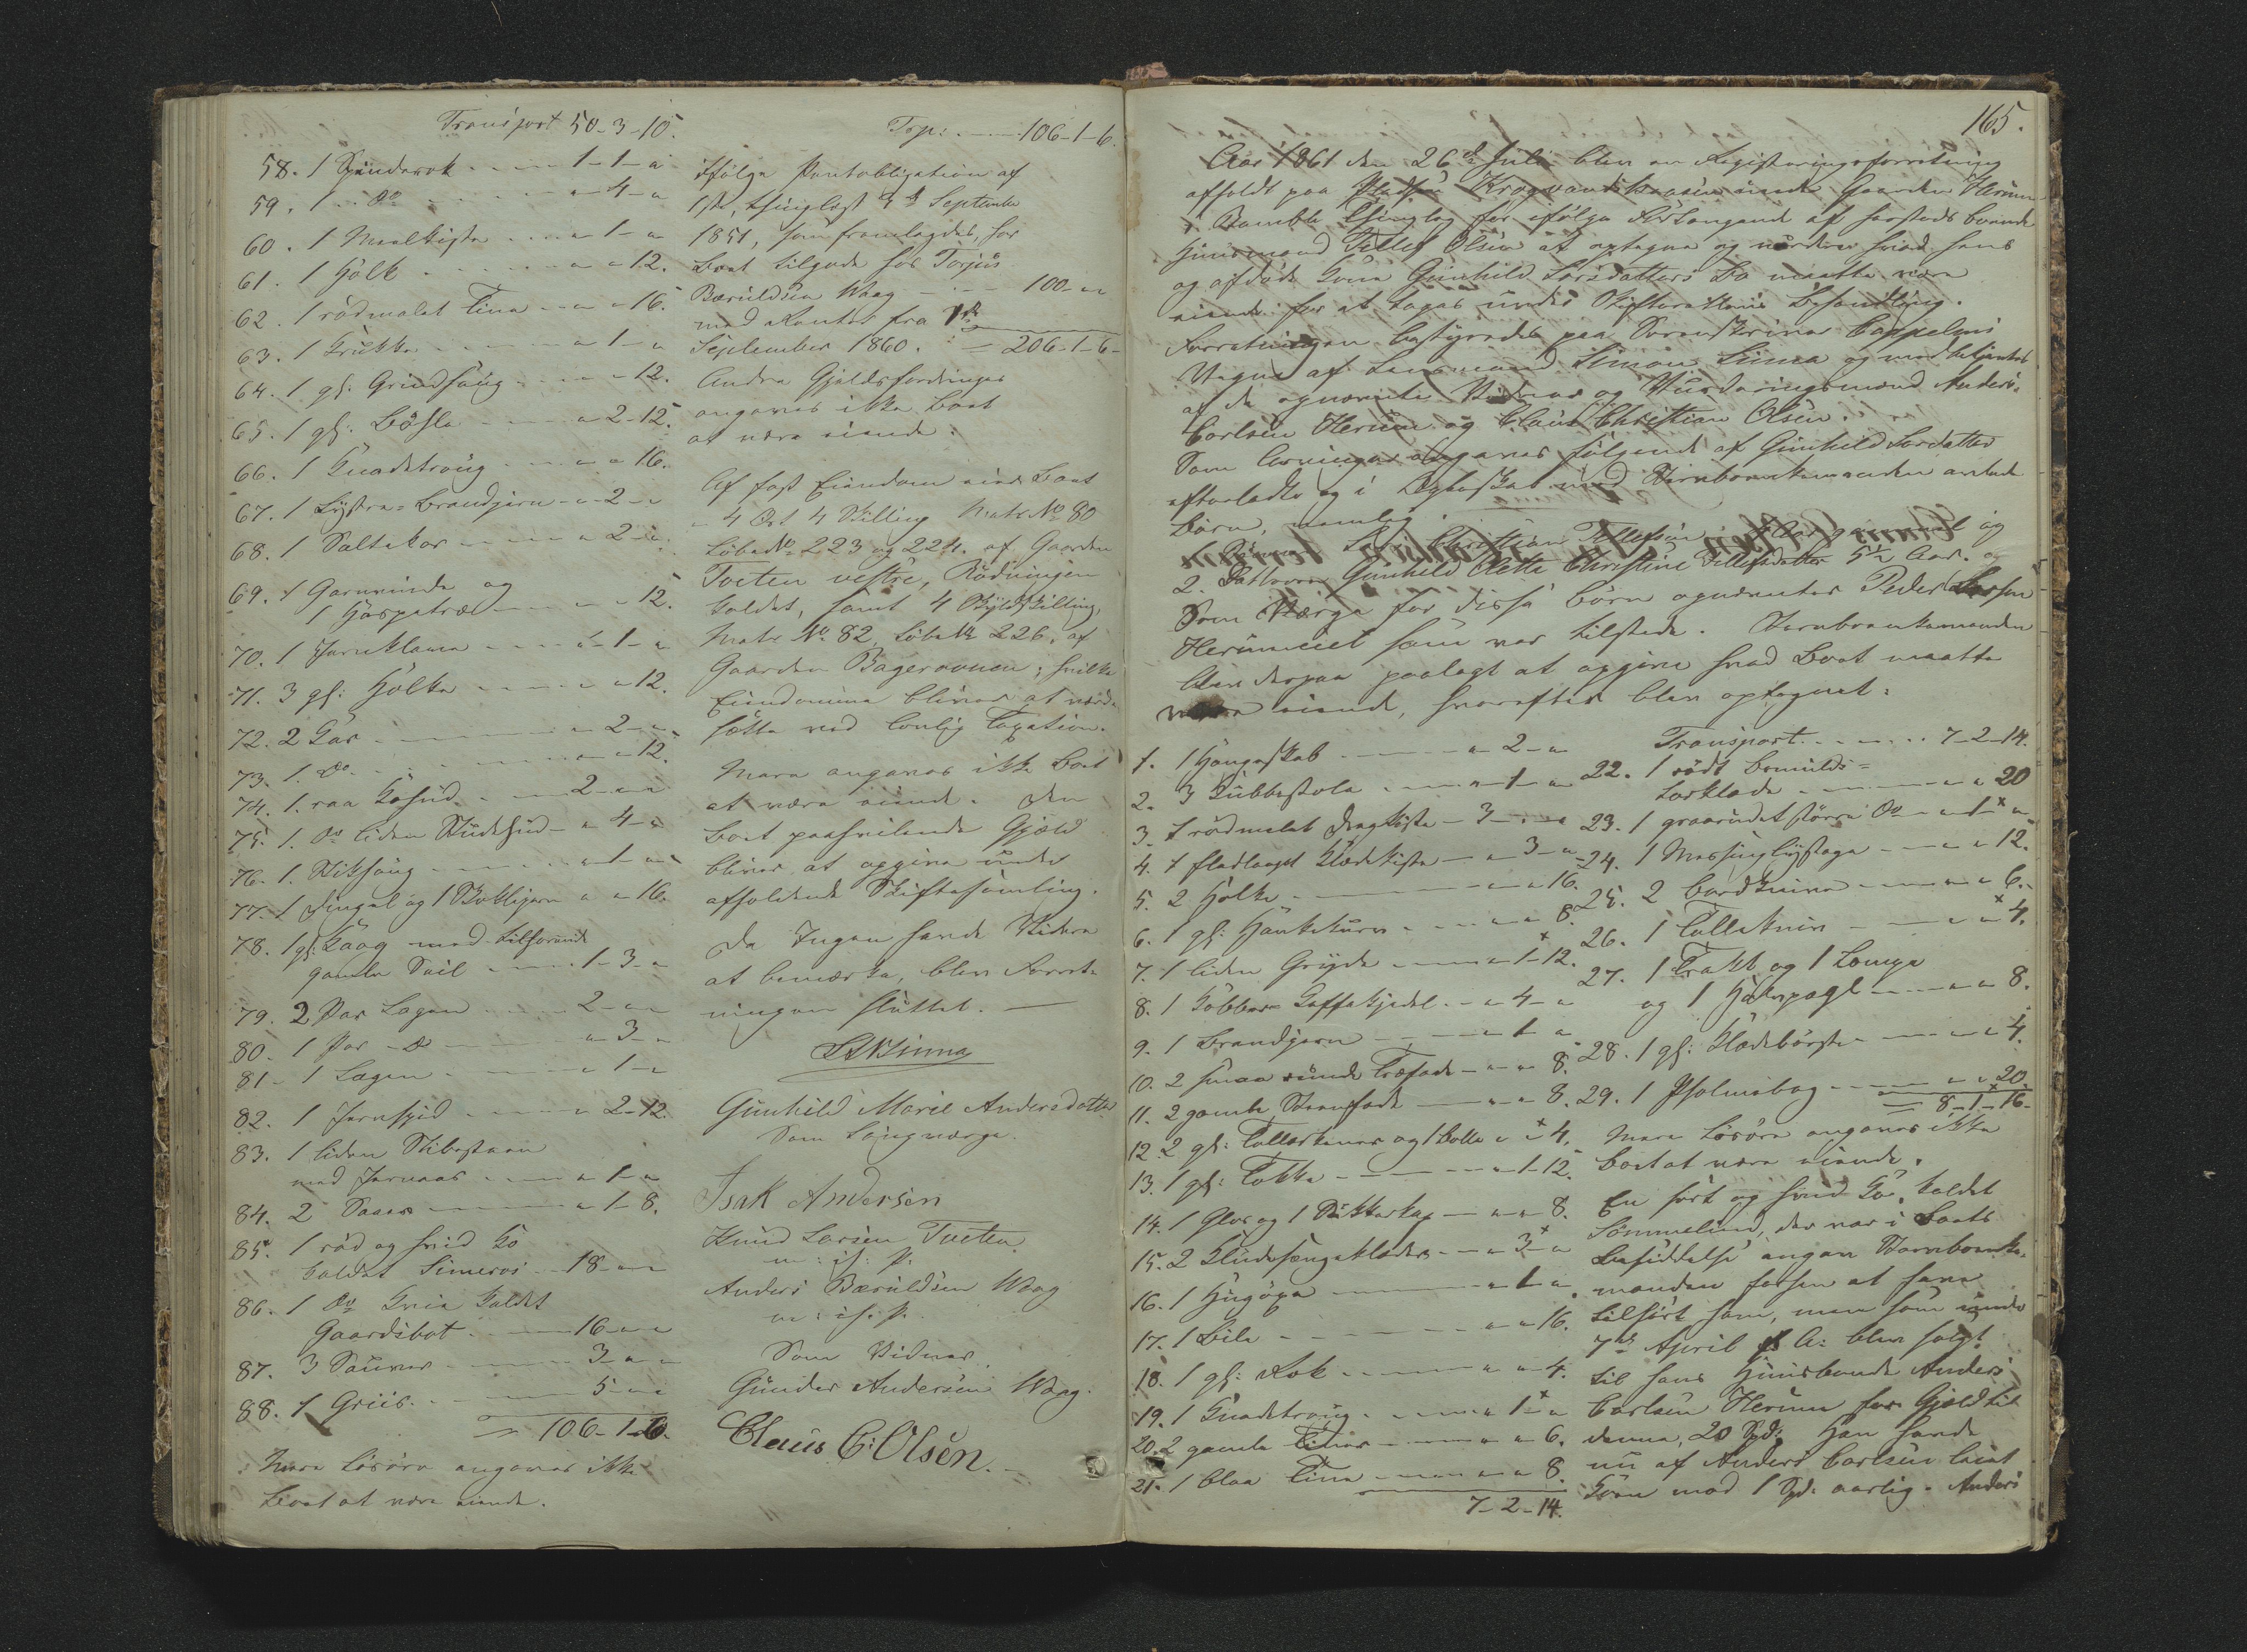 Transport 50-3-10.
58. 1 Spinderok - 1-1-"
59. 1 Do - " 4-"
60. 1 Meelkiste - " 1-"
61. 1 Holk - " " 12.
62. 1 rödmalet Tine - " " 16.
63. 1 Krukke - " 1-"
64. 1 gl: Grindsaug - " " 12.
65. 1 gl: Bösse - " 2-12.
66. 1 Knadetroug - " " 16.
67. 1 Lystre-Brandjern - " 2-"
68. 1 Saltekar - " 2-"
69. 1 Garnvinde og
1 Haspetræ - " " 12.
70. 1 Jernklave - " 1-"
71. 3 gl: Holke - " " 12.
72. 2 Kar - " 2-"
73. 1. Do - " " 12.
74. 1. raa Kohud - 2-"-"
75. 1. Do liden Studehud - " 4-"
76. 1. Stiksaug - " 1-"
77. 1 Dengel og 1 Boltejern " " 16.
78. 1 gl: Kaag med tilhørende
gamle Seil - 1-3-"
79. 2 Par Lagen - 2-"-"
80. 1 Par Do - " 3-"
81. 1 Lagen - " 1-"
82. 1 Jernspid - " 2-12.
83. 1 liden Slibesteen
med Jernaas - " 1-"
84. 2 Saaer - " 1-8.
85. 1 rød og hvid Ko
kaldet Simeros - 18-"-"
86. 1 Do Kvie kaldet
Gaardsbot - 16-"-"
87. 3 Souver - 3-"-"
88. 1 Griis - 5-"-"
= 106-1-6.
Mere Løsøre angaves ikke
Boet at være eiende.
Trp: - 106-1-6.
ifølge Pantobligation af
1ste, thinglæst 4de September
1851, som fremlagdes, har
Boet tilgode hos Torjus
Bæruldsen Waag - 100-"-"
med Renter fra 1ste
September 1860. = 206-1-6-
Andre Gjældsfordringer
angaves ikke Boet
at være eiende.
Af fast Eiendom eier Boet
- 4 Ort 4 Skilling Matr No 80
Løbe No 223 og 224. af Gaarden
Tveten vestre, Rödningen
kaldet, samt 4 Skilling,
Matr No 82, Løbe No 226. af
Gaarden Bagerovnen; hvilke
Eiendomme bliver at værd-
sætte ved lovlig Taxation.
Mere angaves ikke Boet
at være eiende. Den
Boet paahvilende Gjæld
bliver at opgive under
afholdende Skiftesamling.
Da Ingen havde Videre
at bemærke, blev Forret-
ningen sluttet. —
S Kinna
Gunhild Marie Andersdatter
Som Laugværge.
Isak Andersen
Knud Larsen Tveten
m: if: P.
Anders Bæruldsen Waag
m: if. P.
Som Vidner
Gunder Andersen Waag.
Claus C: Olsen.
165.
Aar 1861 den 26de Juli blev en Registeringsforretning
afholdt paa Pladsen Krogvandskaasen under Gaarden Herum
i Bamble Thinglag for ifølge Forlangende af herstedsboende
Huusmand Tellef Olsen at optegne og vurdere hvad hans
og afdøde Kone Gunhild Larsdatters Bo maatte være
eiende for at tages under Skifterettens Behandling.
Forretningen bestyredes paa Sorenskriver Cappelens
Vegne af Lensmand Simon Kinna og med betjentes
af de opnævnte Vidner og Vurderingsmænd Anders
Carlsen Herum og Claus Christian Olsen.
Som Arvinger angaves følgende af Gunhild Larsdatter
efterladte og i Ægteskab med Stervboenkemanden avlede
Børn, nemlig:
Christian Tellefsen Aar gammel og
2. Datteren Gunhild Aletta Christine Tellefsdatter 5½ Aar.
Som Værge for disse Børn opnævntes Peder Larsen
Herumeiet som var tilstede. Stervboenkemanden
blev derpaa paalagt at opgive hvad Boet maatte
være eiende, hvorefter blev optegnet:
1. 1 Hængeskab - " 2-"
2. 3 Kubbestole - " 1-"
3. 1 rödmalet Dragkiste - 3-"-"
4. 1 fladlaaget Klædekiste - " 3-"
5. 2 Holke - " " 16.
6. 1 gl: Hankekurv - " " 8.
7. 1 liden Gryde - " 1-12.
8. 1 Kobber Kaffekjedel - " 4-"
9. 1 Brandjern - " 1-"
10. 2 smaa runde Træfade - " " 8.
11. 2 gamle Steenfade - " " 8.
12. 2 gl: Tallerkener og 1 Bolle " " 4.
13. 1 gl: Tokke - " 1-12.
14. 1 Glas og 1 Sukkerkop - " " 8.
15. 2 Kludesengeklæder - " 3-"
16. 1 Hugöxe - " 1-"
17. 1 Bile - " " 16.
18. 1 gl: Rok - " " 4.
19. 1 Knadetroug - " 1-"
20. 2 gamle Tiner - " " 6.
21. 1 blaa Tine - " " 8.
7-2-14.
Transport - 7-2-14.
22. 1 rödt Bomulds-
tørklæde - " " 20
23. 1 graarudet større Do - " 1-"
24. 1 Messinglystage - " " 12.
25. 2 Bordknive - " " 6.
26. 1 Tolleknive - " " 4.
27. 1 Trakt og 1 Lampe
og 1 Halvpægl - " " 8.
28. 1 gl: Klædebørste - " " 4.
29. 1 Psalmebog - " " 20.
= 8-1-16-
Mere Løsøre angaves ikke
Boet at være eiende.
En sort og hvid Ko, kaldet
Sommelind, der var i Boets
Besiddelse angav Stervboenke-
manden forhen at have
tilhørt ham, men som under
7de April d. A: blev solgt
til hans Huusbonde Anders
Carlsen Herum for Gjæld til
denne, 20 Spd: Han havde
nu af Anders Carlsen leiet
Koen mod 1 Spd. aarlig. Anders